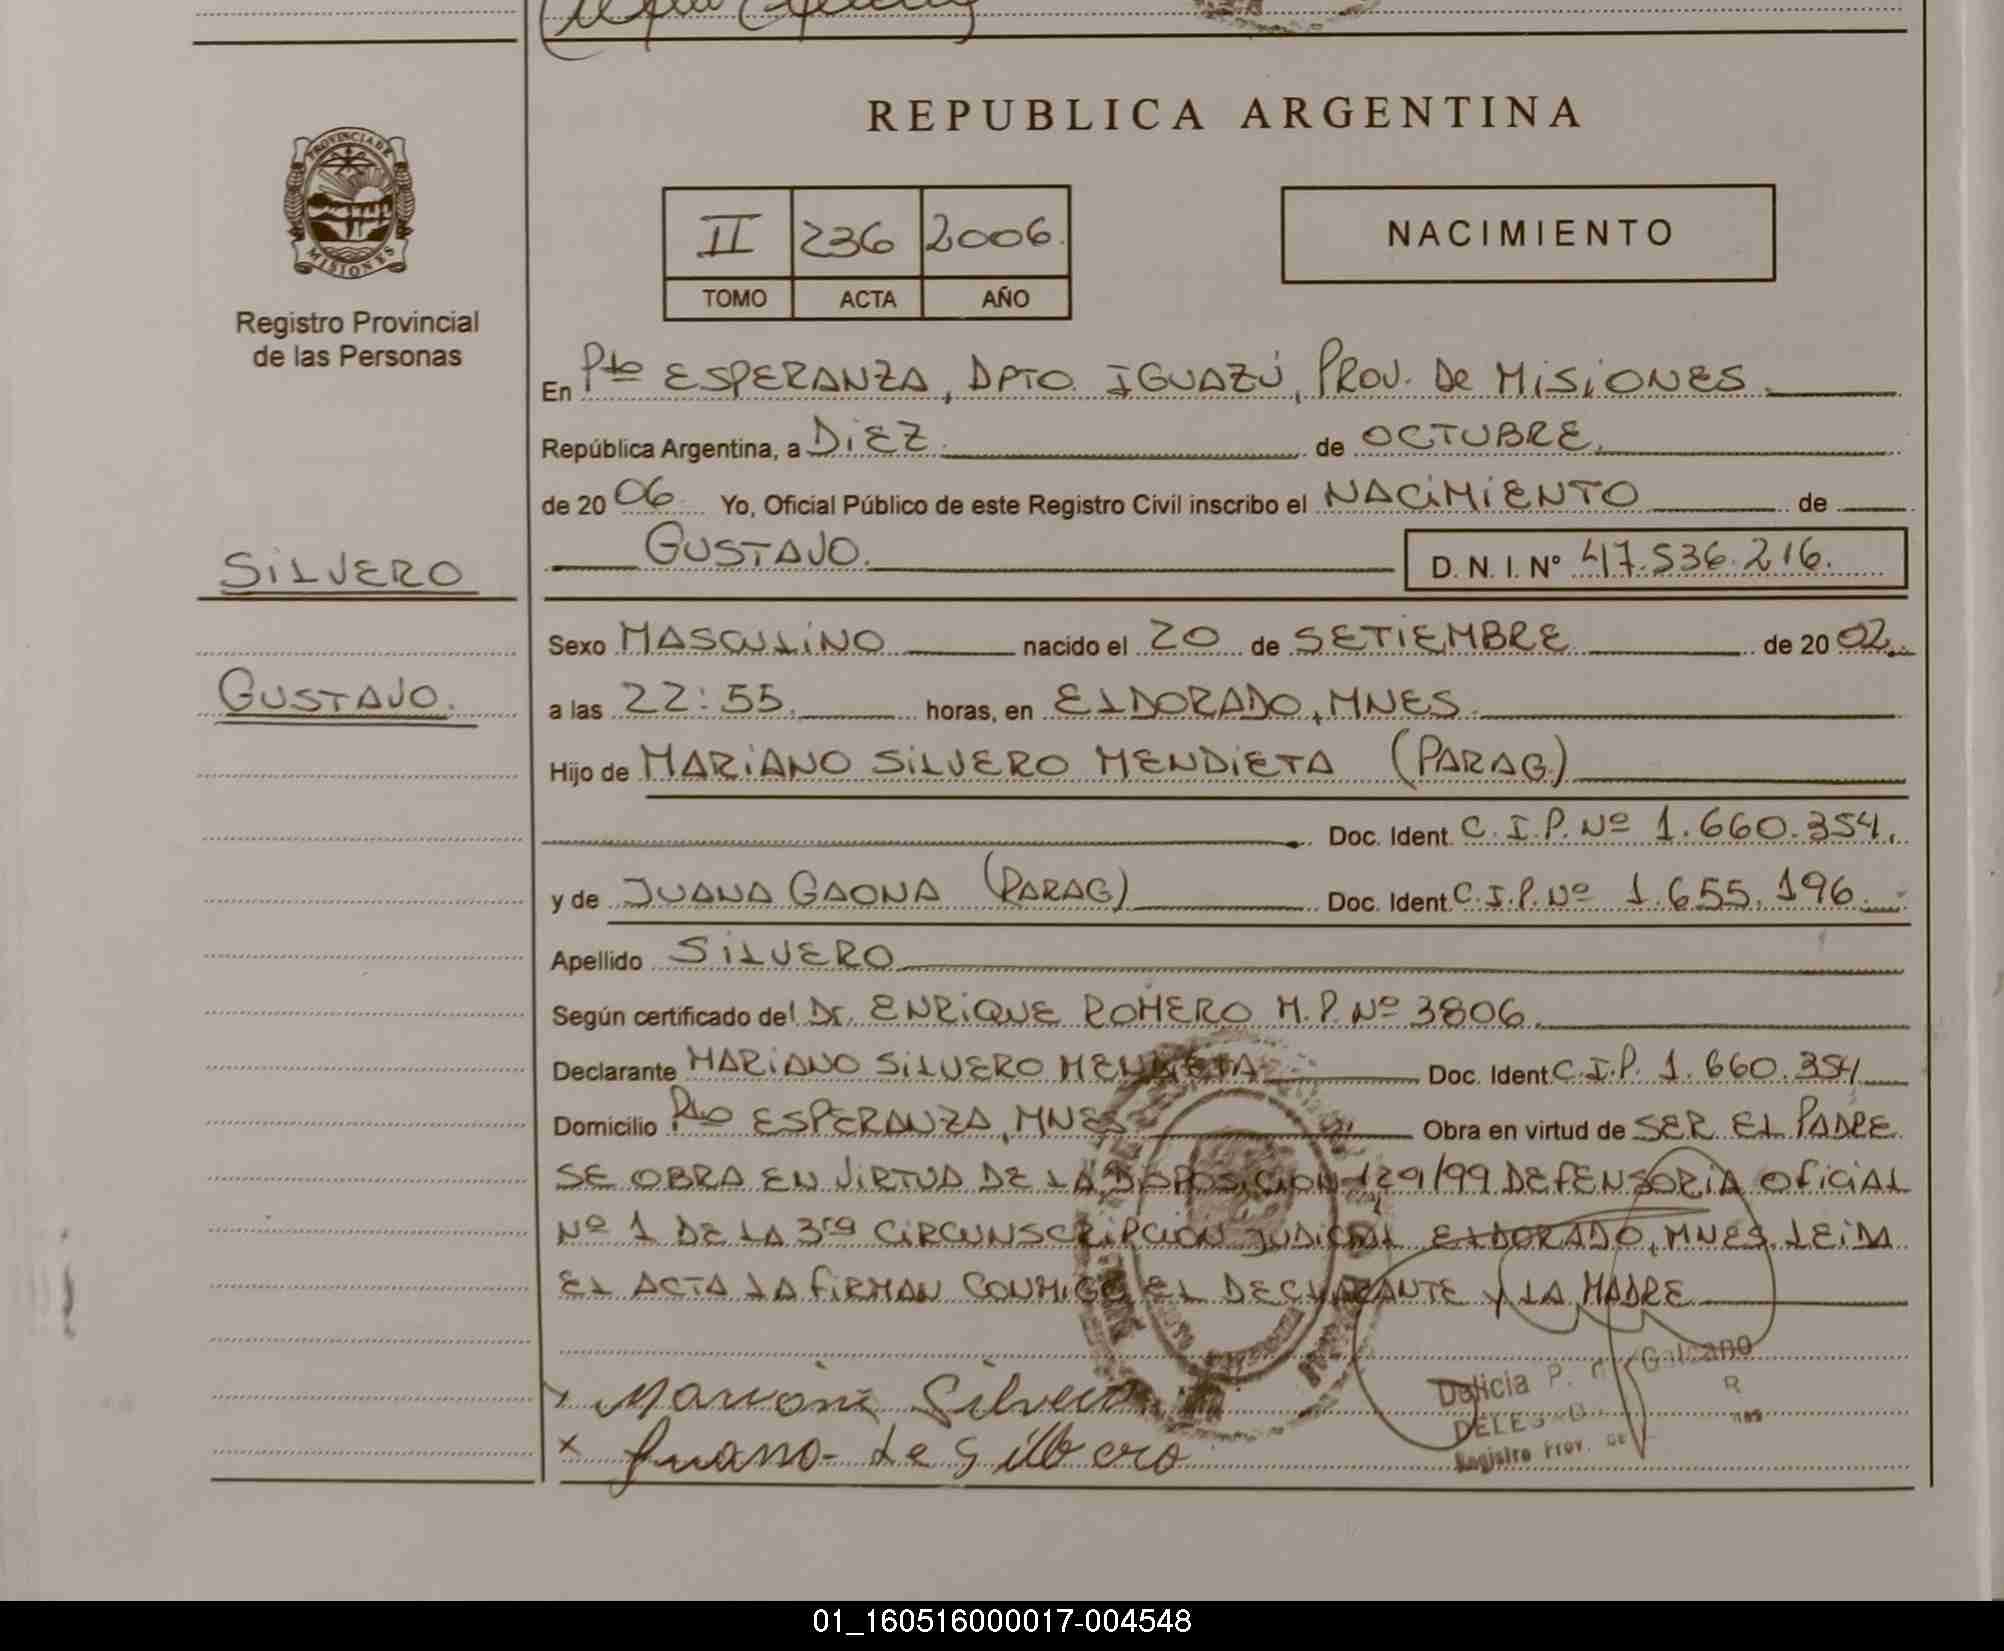 REPUBLICA ARGENTINA
PROVINCIA DE
MISIONES
Registro Provincial
de las Personas
II 236 2006.
TOMO ACTA AÑO
NACIMIENTO
En Pto ESPERANZA, DPTO. IGUAZÚ, PROV. De MiSiONES.
República Argentina, a DiEZ de OCTUBRE.
de 20 06 Yo, Oficial Público de este Registro Civil inscribo el NACiMiENTO de
GUSTAVO. D. N. I. Nº 47.536.216.
SiLVERO
GUSTAVO.
Sexo MASCULiNO nacido el 20 de SETiEMBRE de 20 02.
a las 22:55. horas, en ELDORADO, MNES.
Hijo de MARiANO SiLVERO MENDiETA (PARAG.)
Doc. Ident. C.I.P. Nº 1.660.354.
y de JUANA GAONA (PARAG) Doc. Ident. C.I.P. Nº 1.655.196.
Apellido SiLVERO
Según certificado del Dr. ENRiQUE ROMERO M.P. Nº 3806.
Declarante MARiANO SiLVERO MENDiETA Doc. Ident. C.I.P. 1.660.354
Domicilio Pto ESPERANZA, MNES Obra en virtud de SER EL PADRE
SE OBRA EN ViRTUD DE LA DiSPOSiCiON 129/99 DEFENSORiA OfiCiAL
Nº 1 DE LA 3ra CiRCUNSCRiPCiON JUDiCiAL ELDORADO, MNES. LEiDA
EL ACTA LA FiRMAN CONMiGO EL DECLARANTE Y LA MADRE
Silvero
x Juana de Silbero
Delicia P. Galeano
Registro Prov. de
01_160516000017-004548